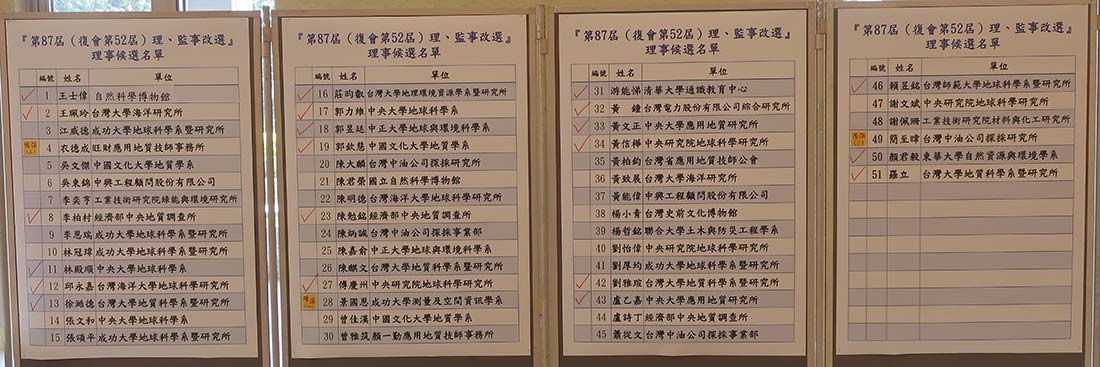 『第87屆（復會第52屆）理、監事改選』
理事候選名單
編號 姓名 單位
1 王士偉 自然科學博物館
2 王珮玲 台灣大學海洋研究所
3 江威德 成功大學地球科學系暨研究所
4 衣德成 旺財應用地質技師事務所
5 吳文傑 中國文化大學地質學系
6 吳東錦 中興工程顧問股份有限公司
7 李奕亨 工業技術研究院綠能與環境研究所
8 李柏村 經濟部中央地質調查所
9 李恩瑞 成功大學地球科學系暨研究所
10 林冠瑋 成功大學地球科學系暨研究所
11 林殿順 中央大學地球科學系
12 邱永嘉 台灣海洋大學地球科學研究所
13 徐澔德 台灣大學地質科學系暨研究所
14 張文和 中央大學地球科學系
15 張頌平 成功大學地球科學系暨研究所
『第87屆（復會第52屆）理、監事改選』
理事候選名單
編號 姓名 單位
16 莊昀叡 台灣大學地理環境資源學系暨研究所
17 郭力維 中央大學地球科學系
18 郭昱廷 中正大學地球與環境科學系
19 郭欽慧 中國文化大學地質學系
20 陳大麟 台灣中油公司探採研究所
21 陳君榮 國立自然科學博物館
22 陳明德 台灣海洋大學地球科學研究所
23 陳勉銘 經濟部中央地質調查所
24 陳炳誠 台灣中油公司探採事業部
25 陳燕俞 中正大學地球與環境科學系
26 陳麒文 台灣大學地質科學系暨研究所
27 傅慶州 中央研究院地球科學研究所
28 景國恩 成功大學測量及空間資訊學系
29 曾佳漢 中國文化大學地質學系
30 曾雅筑 顏一勤應用地質技師事務所
『第87屆（復會第52屆）理、監事改選』
理事候選名單
編號 姓名 單位
31 游能悌 清華大學通識教育中心
32 黃鐘 台灣電力股份有限公司綜合研究所
33 黃文正 中央大學應用地質研究所
34 黃信樺 中央研究院地球科學研究所
35 黃柏鈞 台灣省應用地質技師公會
36 黃致展 台灣大學海洋研究所
37 黃能偉 中興工程顧問股份有限公司
38 楊小青 台灣史前文化博物館
39 楊哲銘 聯合大學土木與防災工程學系
40 劉怡偉 中央研究院地球科學研究所
41 劉厚均 成功大學地球科學系暨研究所
42 劉雅瑄 台灣大學地質科學系暨研究所
43 盧乙嘉 中央大學應用地質研究所
44 盧詩丁 經濟部中央地質調查所
45 蕭從文 台灣中油公司探採事業部
『第87屆（復會第52屆）理、監事改選』
理事候選名單
編號 姓名 單位
46 賴昱銘 台灣師範大學地球科學系暨研究所
47 謝文斌 中央研究院地球科學研究所
48 謝佩珊 工業技術研究院材料與化工研究所
49 簡至暐 台灣中油公司探採研究所
50 顏君毅 東華大學自然資源與環境學系
51 羅立 台灣大學地質科學系暨研究所